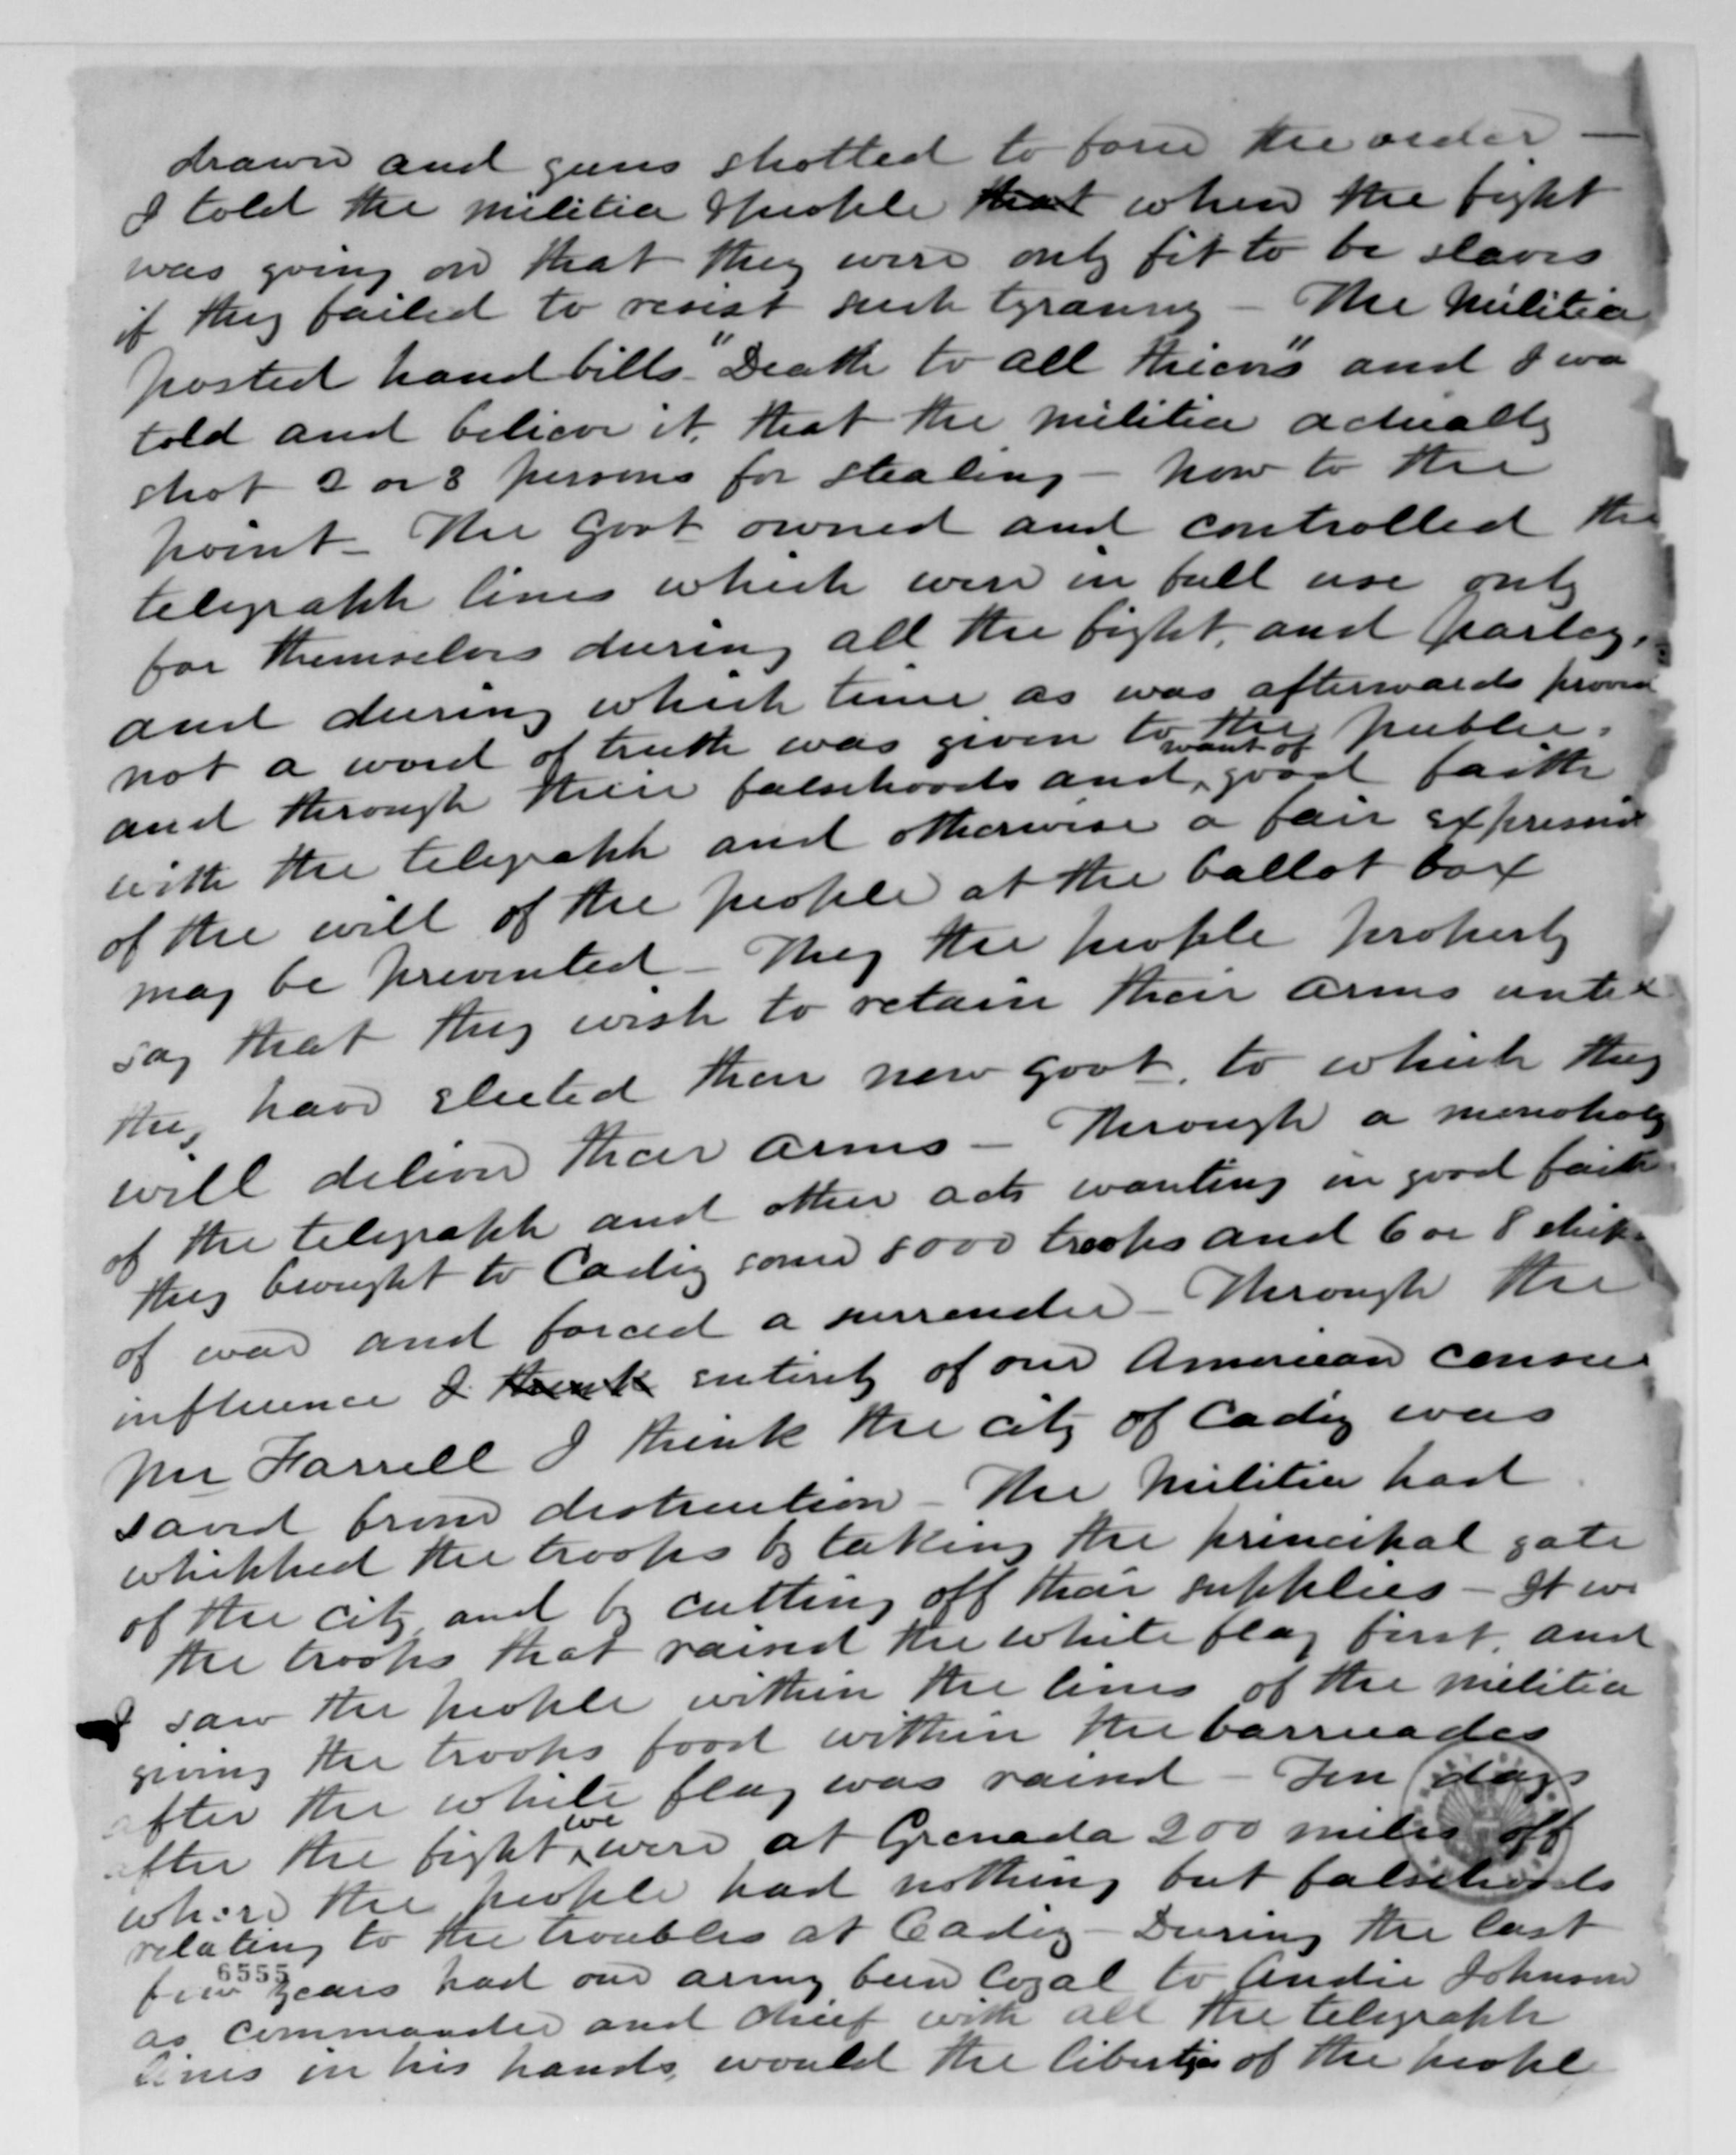 drawn and guns shotted to force the order —
I told the militia & people that when the fight
was going on that they were only fit to be slaves
if they failed to resist such tyranny — The Militia
posted hand bills "Death to all thieves" and I wa
told and believe it, that the militia actually
shot 2 or 3 persons for stealing — now to the
point — The Govt owned and controlled the
telegraph lines which were in full use only
for themselves during all the fight, and parley,
and during which time as was afterwards proven
not a word of truth was given to the public,
and through their falsehoods and want of good faith
with the telegraph and otherwise a fair expression
of the will of the people at the ballot box
may be prevented — They the people properly
say that they wish to retain their arms until
they have elected their new Govt. to which they
will deliver their arms — Through a monopoly
of the telegraph and other acts wanting in good faith
they brought to Cadiz some 8000 troops and 6 or 8 ships
of war and forced a surrender — Through the
influence I think entirely of our American consul
Mr Farrell I think the city of Cadiz was
saved from destruction — The Militia had
whipped the troops by taking the principal gate
of the city, and by cutting off their supplies — It wa
the troops that raised the white flag first, and
I saw the people within the lines of the militia
giving the troops food within the barricades
after the white flag was raised — Ten days
after the fight we were at Grenada 200 miles off
where the people had nothing but falsehoods
relating to the troubles at Cadiz — During the last
6555
few years had our army been loyal to Andie Johnson
as commander and chief with all the telegraph
lines in his hands, would the liberties of the people